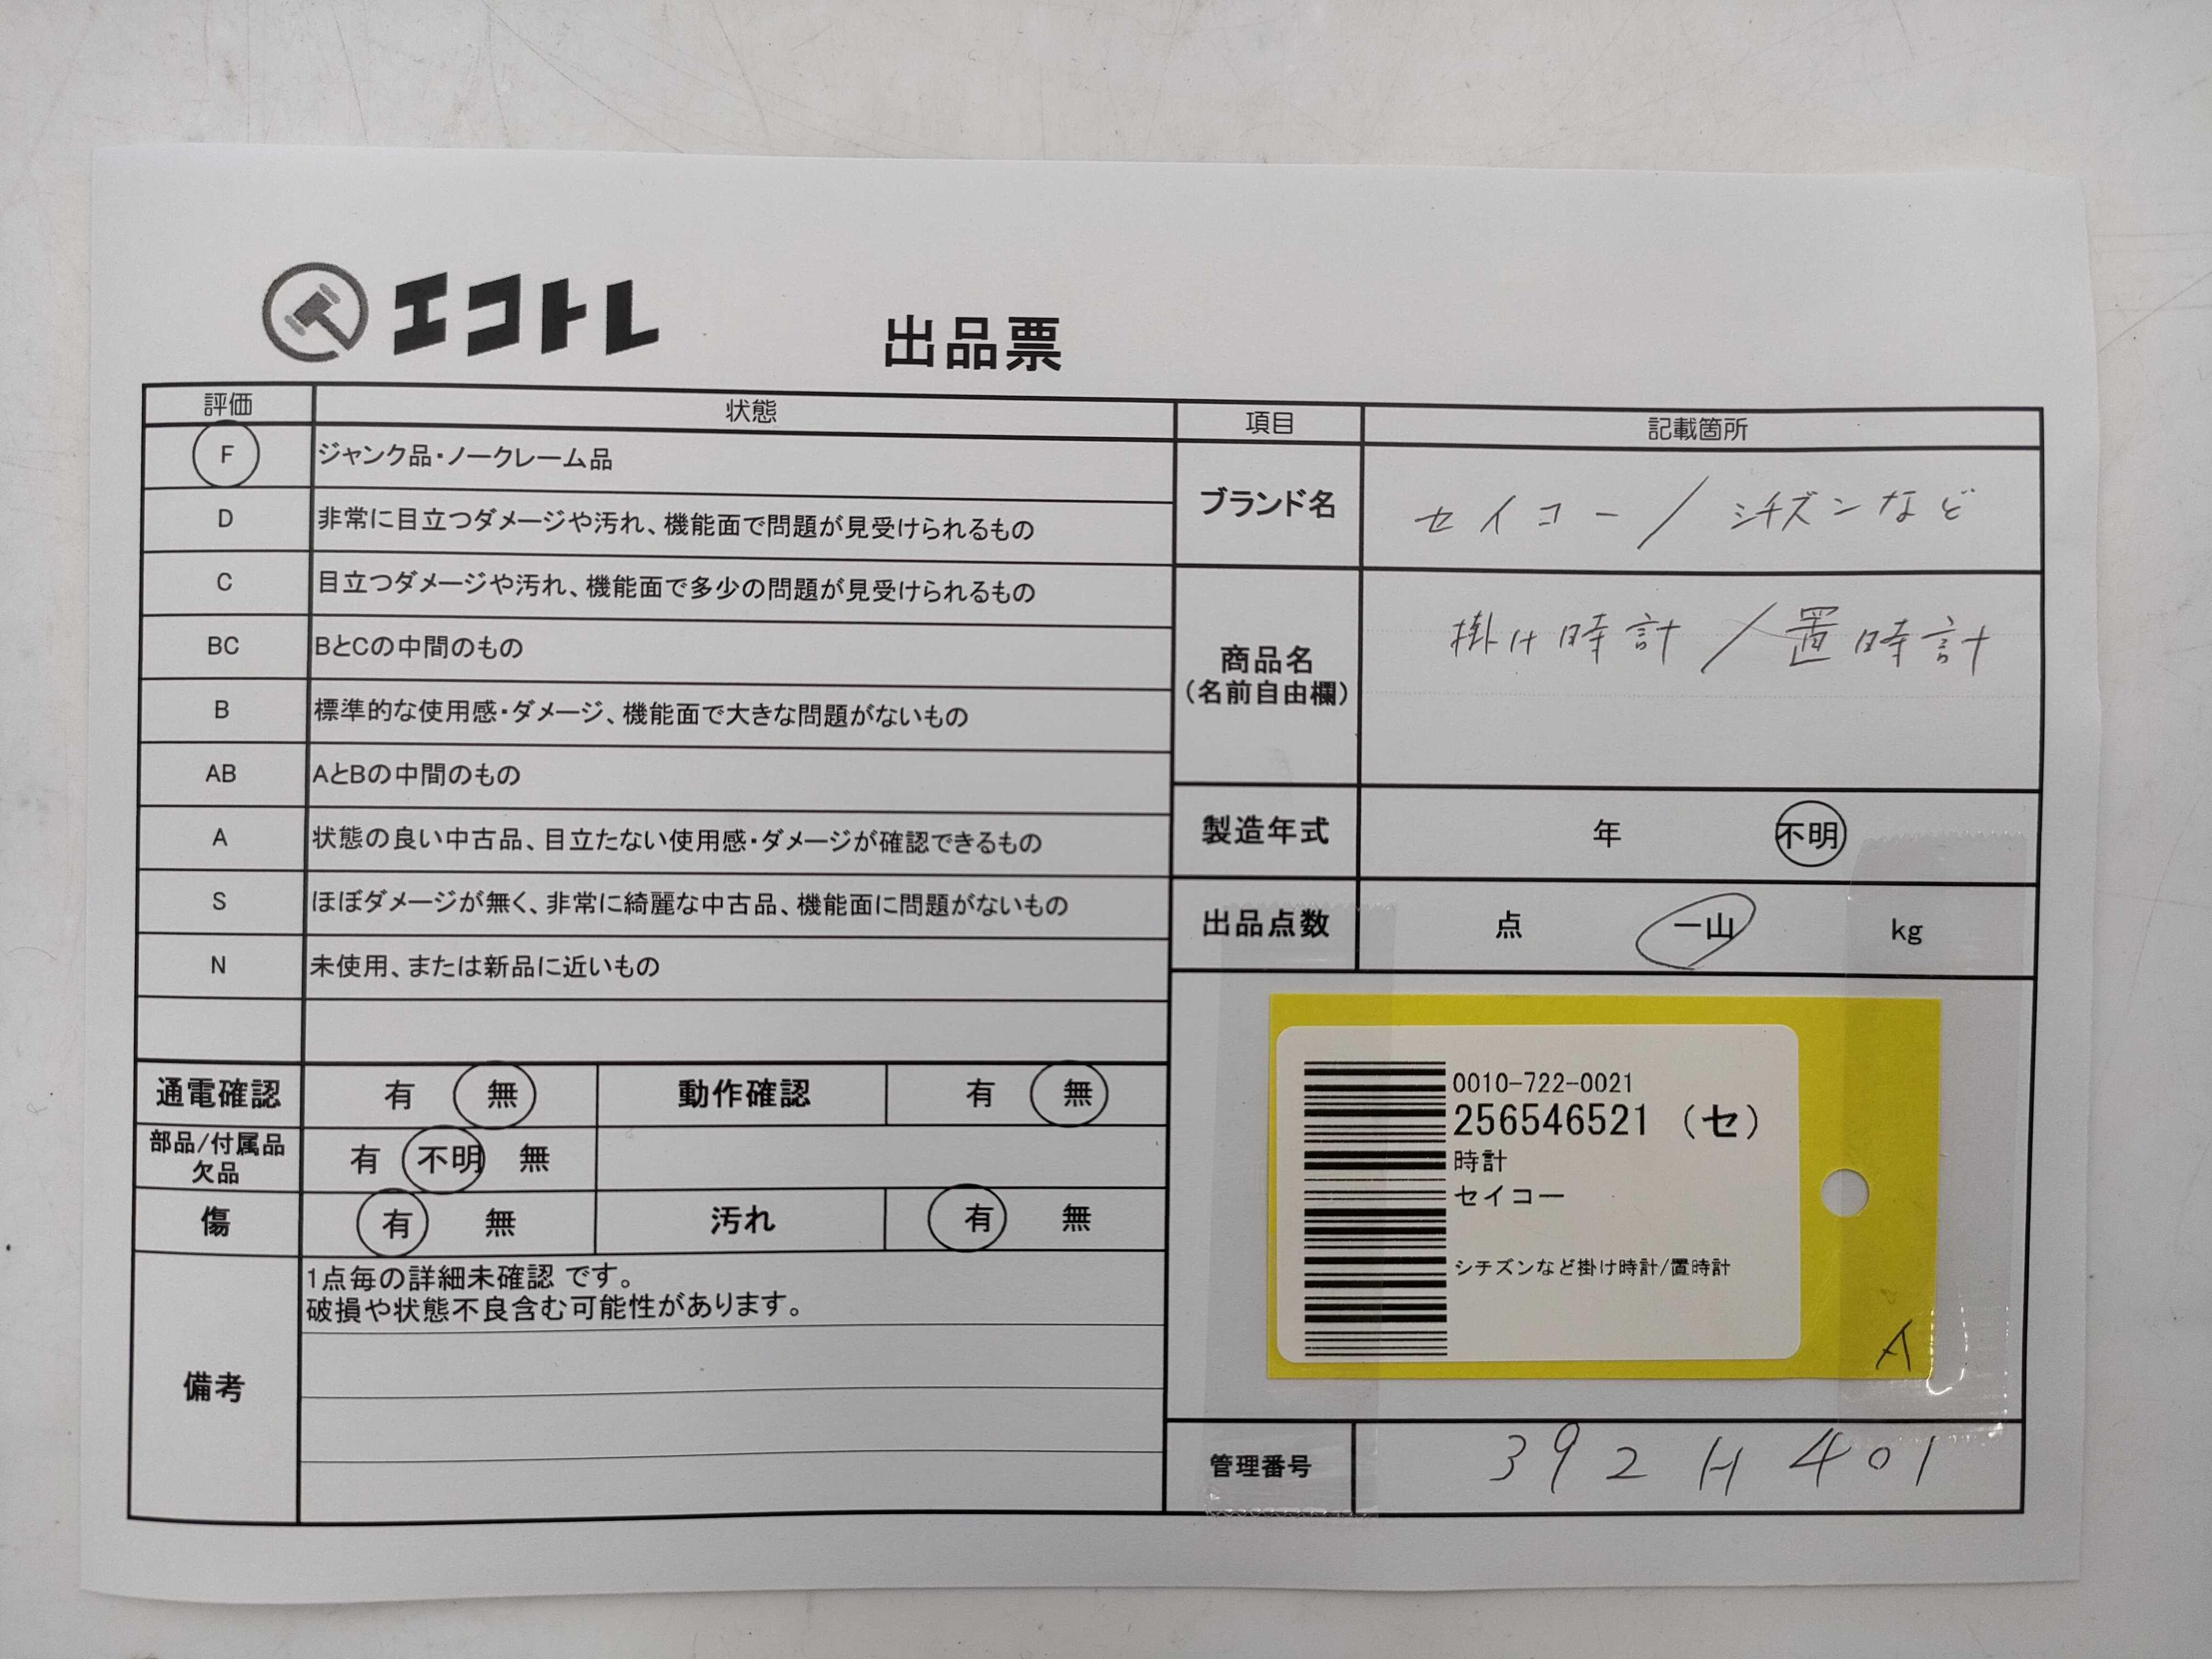 エコトレ
出品票
評価 状態
F ジャンク品・ノークレーム品
D 非常に目立つダメージや汚れ、機能面で問題が見受けられるもの
C 目立つダメージや汚れ、機能面で多少の問題が見受けられるもの
BC BとCの中間のもの
B 標準的な使用感・ダメージ、機能面で大きな問題がないもの
AB AとBの中間のもの
A 状態の良い中古品、目立たない使用感・ダメージが確認できるもの
S ほぼダメージが無く、非常に綺麗な中古品、機能面に問題がないもの
N 未使用、または新品に近いもの
通電確認 有 無 動作確認 有 無
部品/付属品
欠品
有 不明 無
傷 有 無 汚れ 有 無
備考
1点毎の詳細未確認 です。
破損や状態不良含む可能性があります。
項目 記載箇所
ブランド名 セイコー/シチズンなど
商品名
(名前自由欄)
掛け時計/置時計
製造年式 年 不明
出品点数 点 一山 kg
0010-722-0021
256546521 (セ)
時計
セイコー
シチズンなど掛け時計/置時計
A
管理番号 392H401